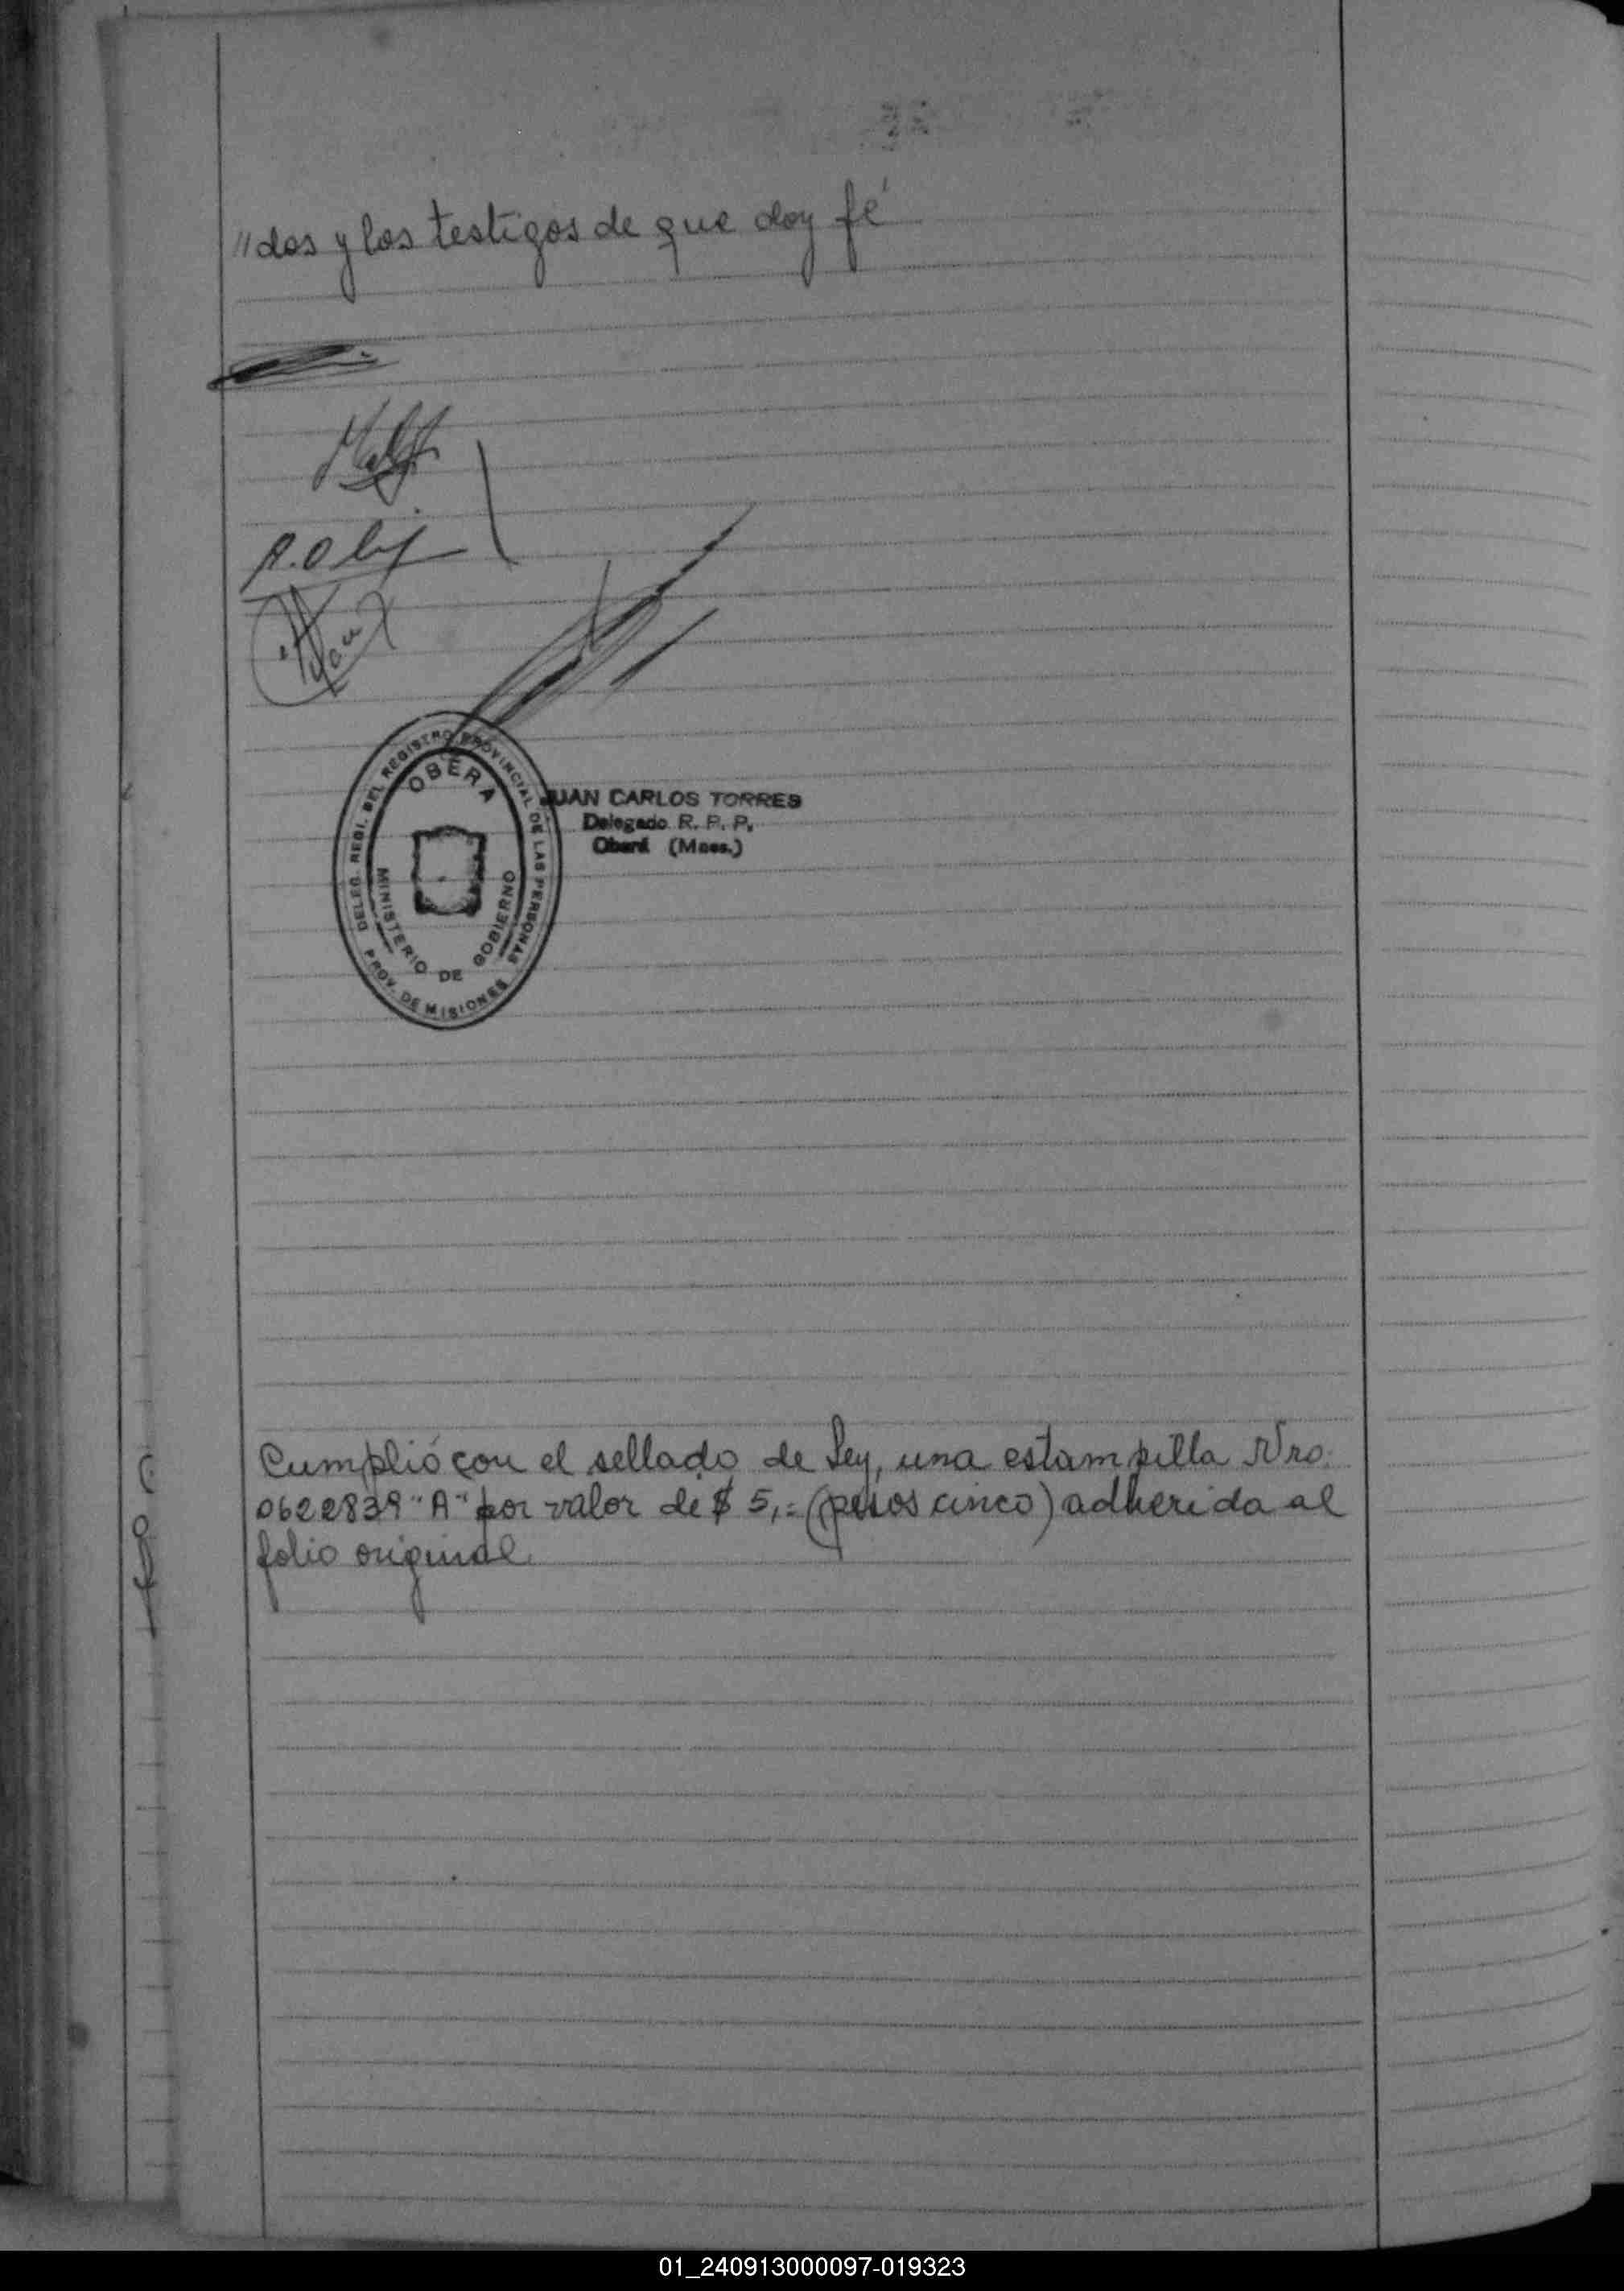 "dos y los testigos de que doy fé
DELEG. REGI. DEL REGISTRO PROVINCIAL DE LAS PERSONAS
PROV. DE MISIONES
OBERA
MINISTERIO DE GOBIERNO
JUAN CARLOS TORRES
Delegado R. P. P.
Oberá (Mnes.)
Cumplió con el sellado de Ley, una estampilla Nro.
0622839 "A" por valor de $ 5,= (pesos cinco) adherida al
folio original.
01_240913000097-019323